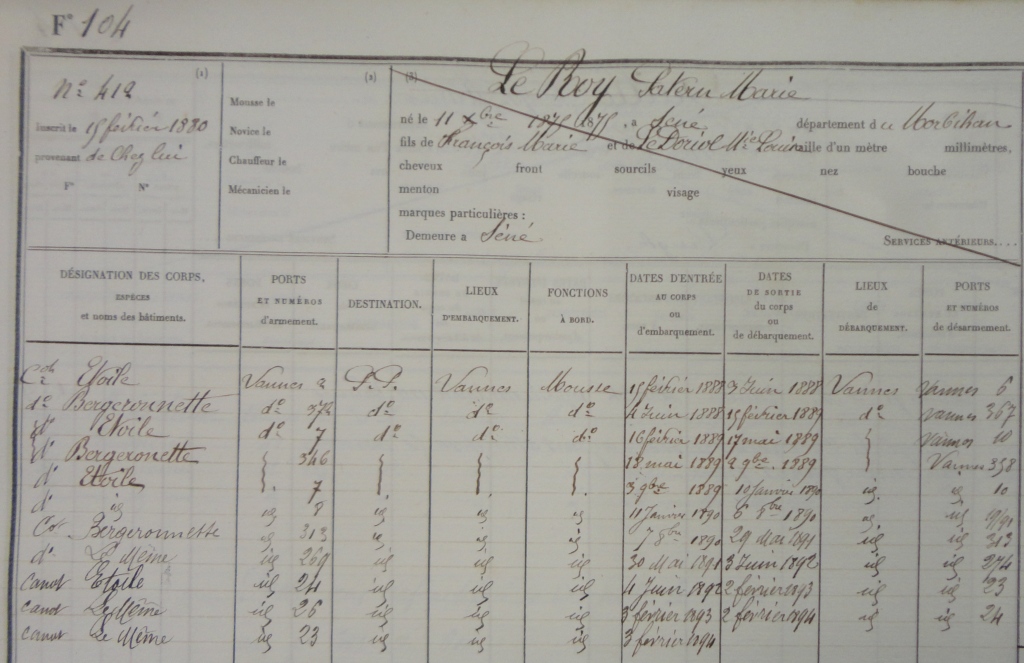 F° 104
N° 412
Inscrit le 15 février 1880
provenant de Chez lui
F° N°
(1)
Mousse le
Novice le
Chauffeur le
Mécanicien le
(2)
(3) Le Roy Patern Marie
né le 11 Xbre 1875 1875, a Séné département du Morbihan
fils de François Marie et de Le Doriol Mie Louise taille d'un mètre millimètres,
cheveux front sourcils yeux nez bouche
menton visage
marques particulières :
Demeure a Séné
Services antérieurs....
DÉSIGNATION DES CORPS, ESPÈCES et noms des bâtiments. PORTS ET NUMÉROS d'armement. DESTINATION. LIEUX D'EMBARQUEMENT. FONCTIONS À BORD. DATES D'ENTRÉE AU CORPS ou d'embarquement. DATES DE SORTIE du corps ou de débarquement. LIEUX de DÉBARQUEMENT. PORTS ET NUMÉROS de désarmement.
Etoile Vannes 2 P.P. Vannes Mousse 15 février 1888 3 Juin 1888 Vannes Vannes 6
d° Bergeronnette d° d° d° d° 4 Juin 1888 15 février 1889 d° Vannes 367
d° Etoile d° 7 d° d° d° 16 février 1889 17 mai 1889 } Vannes 10
d° Bergeronette } 346 } } } 18 mai 1889 2 9bre 1889 } Vannes 358
d° Etoile 7 3 9bre 1889 10 Janvier 1890 id 10
d° id id 8 id id id 11 Janvier 1890 6 8bre 1890 id id
Bergeronnette id 313 id id id 7 8bre 1890 29 Mai 1891 id id 313
d° Le Même id 269 id id id 30 Mai 1891 3 Juin 1892 id id 274
canot Etoile id 24 id id id 4 Juin 1892 2 février 1893 id id 23
canot Le Même id 26 id id id 3 février 1893 2 février 1894 id id 24
canot Le Même id 23 id id id 3 février 1894